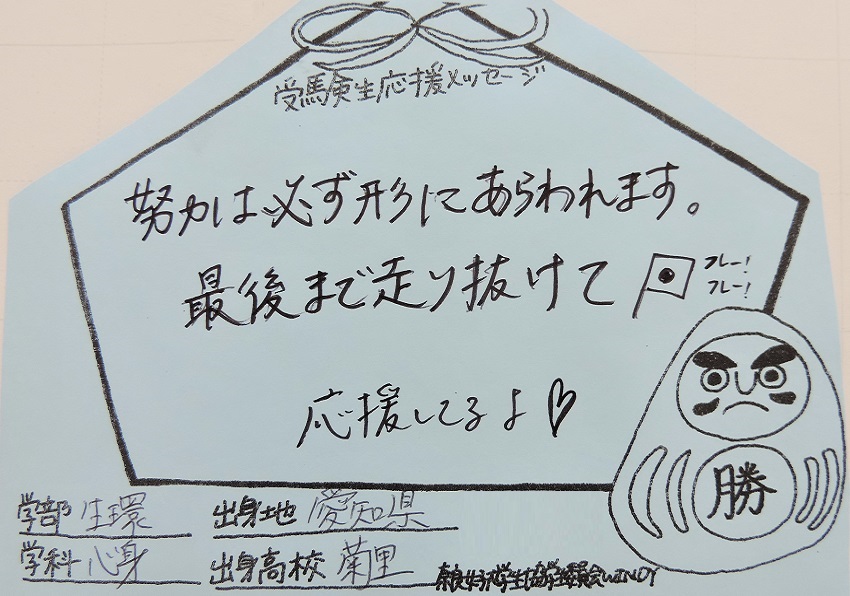 受験生応援メッセージ
努力は必ず形にあらわれます。
最後まで走り抜けて
フレー!
フレー!
応援してるよ♡
勝
学部 生環
出身地 愛知県
学科 心身
出身高校 菊里
WINDY